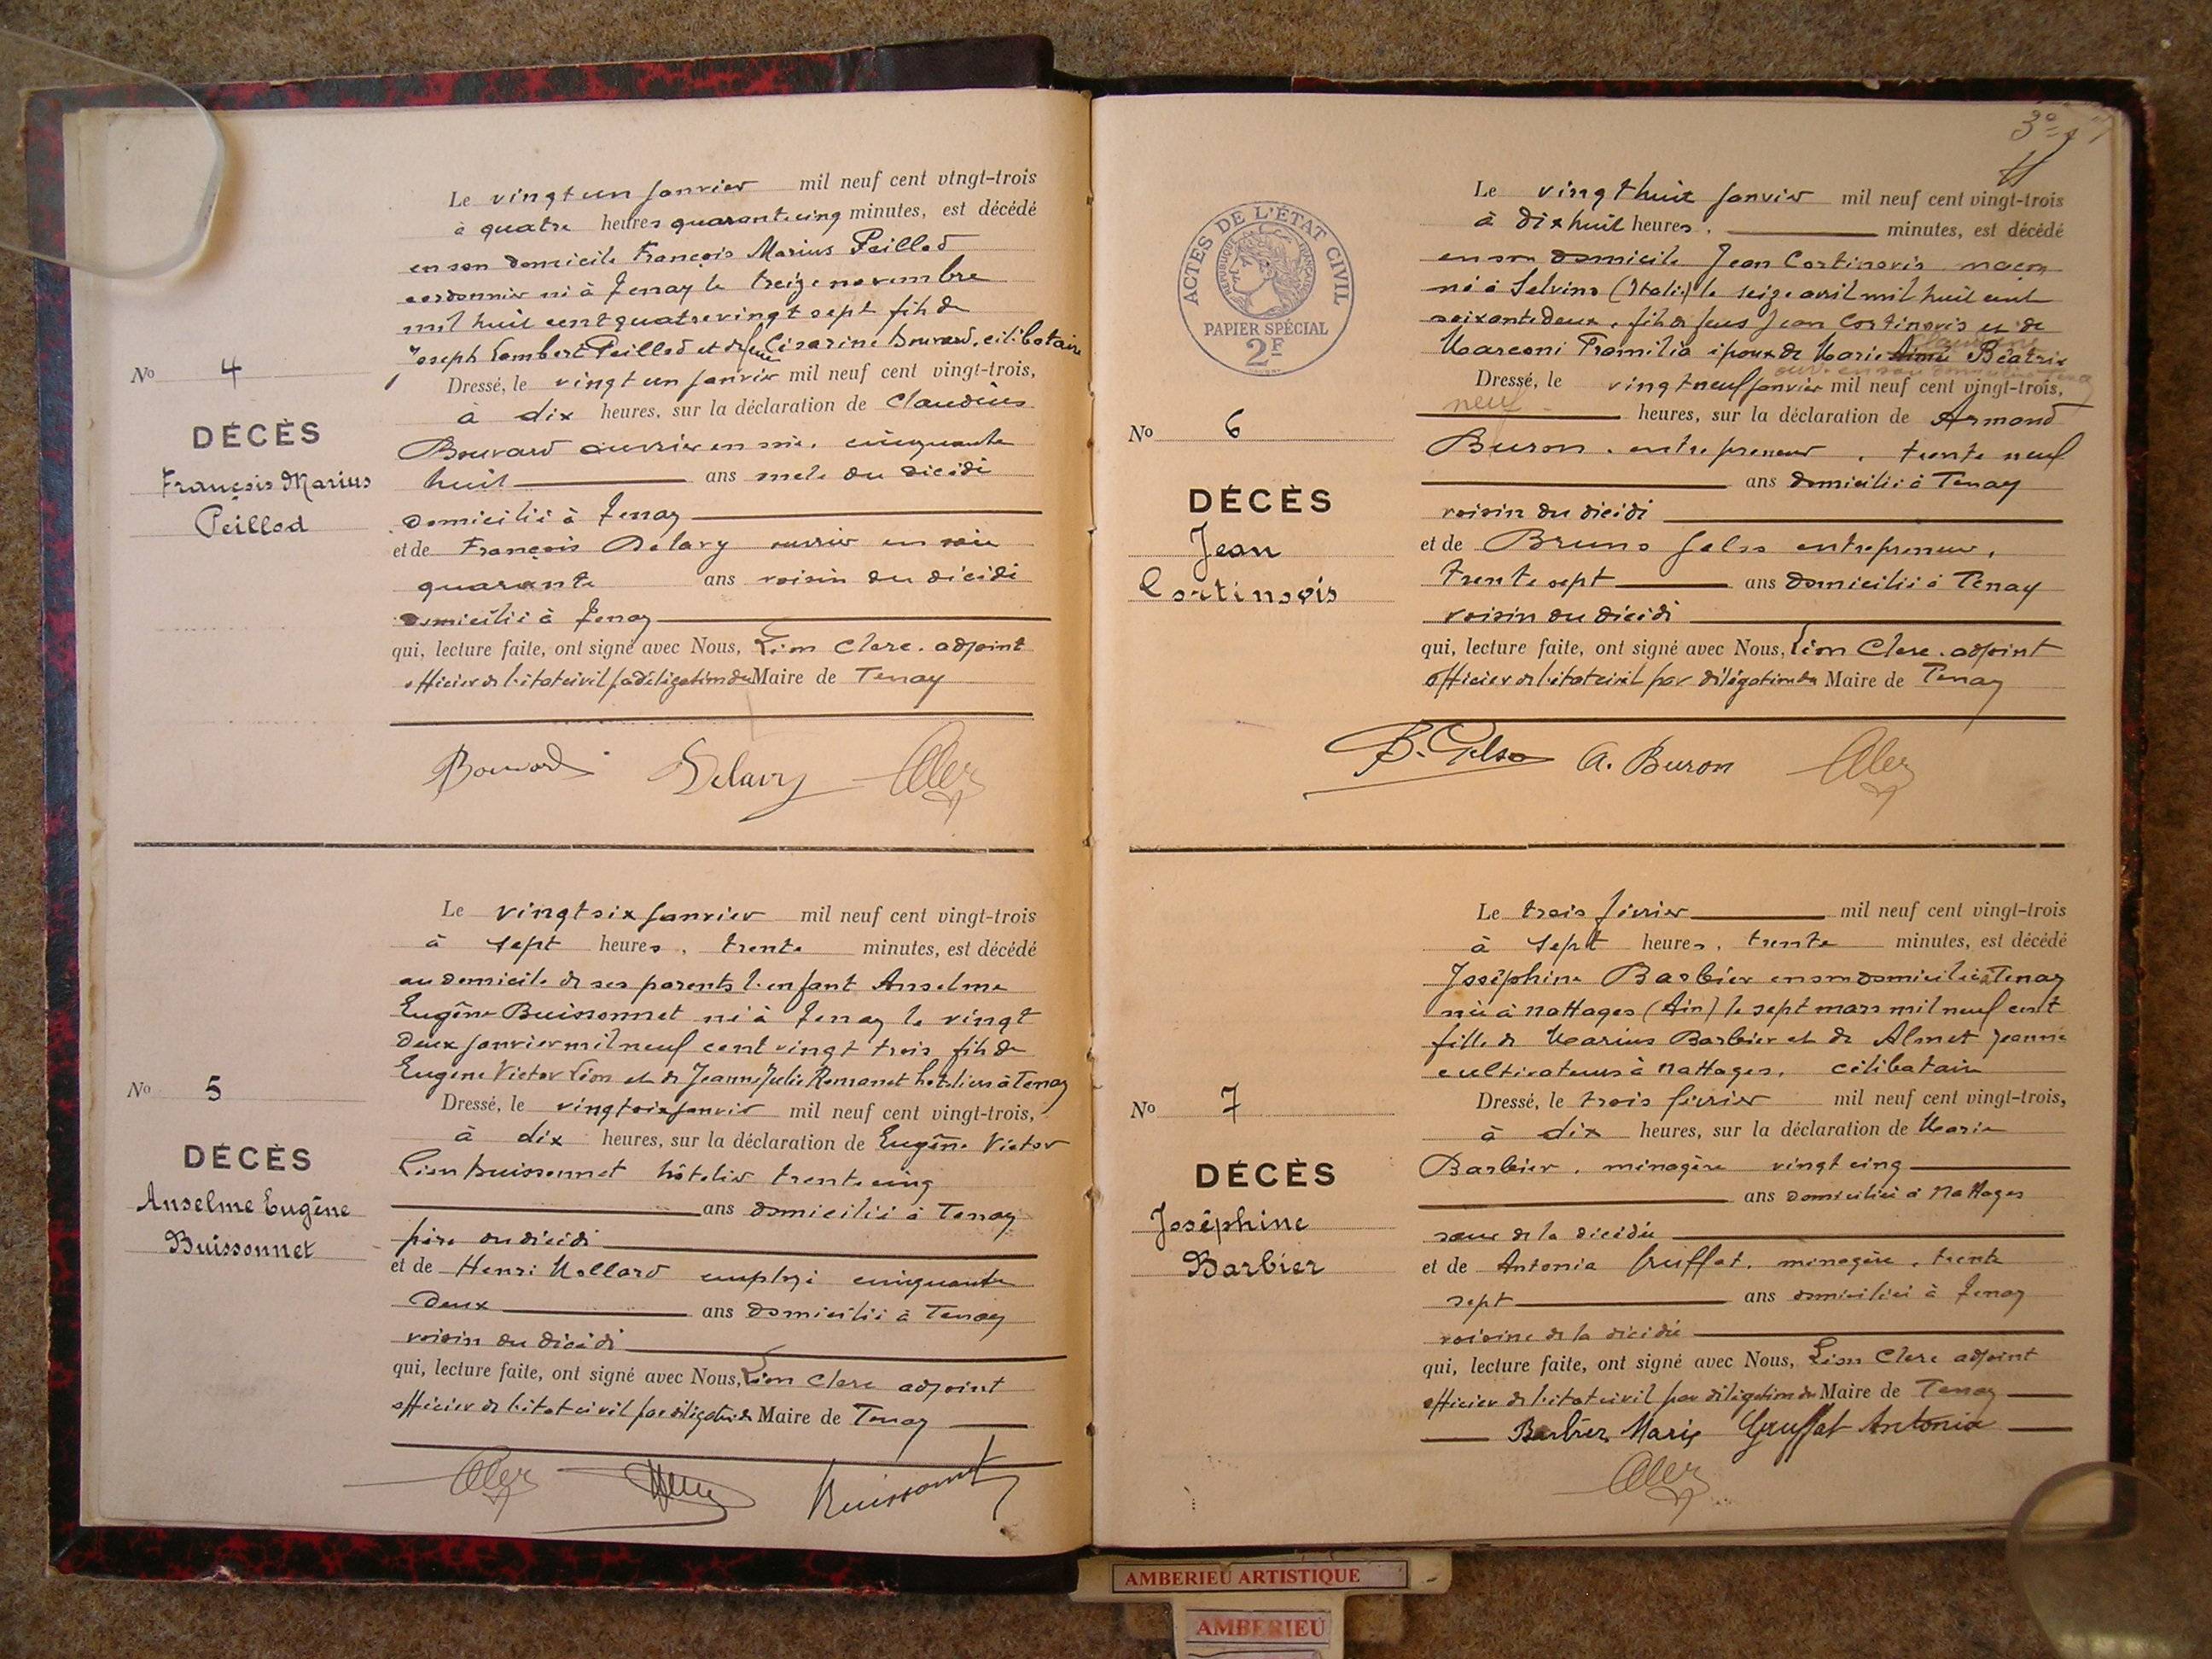 Le vingt un janvier mil neuf cent vingt-trois
à quatre heures quarante cinq minutes, est décédé
en son domicile François Marius Peillod
cordonnier né à Tenay le treize novembre
mil huit cent quatre vingt sept fils de
Joseph Lambert Peillod et de feue Césarine Bouvard, célibataire
Dressé, le vingt un janvier mil neuf cent vingt-trois,
à dix heures, sur la déclaration de Claudius
Bouvard ouvrier en soie, cinquante
huit ans oncle du décédé
domicilié à Tenay
et de François Delavy ouvrier en soie
quarante ans voisin du décédé
domicilié à Tenay
qui, lecture faite, ont signé avec Nous, Léon Clerc. adjoint
officier de l'état civil par délégation du Maire de Tenay
No 4
DÉCÈS
François Marius
Peillod
Bouvard Delavy Clerc
Le vingt six janvier mil neuf cent vingt-trois
à sept heures, trente minutes, est décédé
au domicile de ses parents l'enfant Anselme
Eugène Buissonnet né à Tenay le vingt
deux janvier mil neuf cent vingt trois fils de
Eugène Victor Léon et de Jeanne Julie hôteliers à Tenay
Dressé, le vingt six janvier mil neuf cent vingt-trois,
à dix heures, sur la déclaration de Eugène Victor
Léon Buissonnet hôtelier trente cinq
ans domicilié à Tenay
père du décédé
et de Henri Mollard employé cinquante
deux ans domicilié à Tenay
voisin du décédé
qui, lecture faite, ont signé avec Nous, Léon Clerc adjoint
officier de l'état civil par délégation du Maire de Tenay
No 5
DÉCÈS
Anselme Eugène
Buissonnet
Clerc Buissonnet
3e
ACTES DE L'ÉTAT CIVIL
RÉPUBLIQUE FRANÇAISE
PAPIER SPÉCIAL
2F
Le vingt huit janvier mil neuf cent vingt-trois
à dix huit heures. minutes, est décédé
en son domicile Jean Cortinovis maçon
né à Selvino (Italie) le seize avril mil huit cent
soixante deux, fils de feus Jean Cortinovis et de
Marconi Framilia époux de Marie Aimée Béatrix
Dressé, le vingt neuf janvier mil neuf cent vingt-trois,
neuf heures, sur la déclaration de Armand
Buron, entrepreneur, trente neuf
ans domicilié à Tenay
voisin du décédé
et de Bruno Gelso entrepreneur,
trente sept ans domicilié à Tenay
voisin du décédé
qui, lecture faite, ont signé avec Nous, Léon Clerc. adjoint
officier de l'état civil par délégation du Maire de Tenay
No 6
DÉCÈS
Jean
Cortinovis
B. Gelso A. Buron Clerc
Le trois février mil neuf cent vingt-trois
à sept heures, trente minutes, est décédé
Joséphine Barbier en son domicile à Tenay
née à Nattages (Ain) le sept mars mil neuf cent
fille de Marius Barbier et de Almet Jeanne
cultivateurs à Nattages, célibataire
Dressé, le trois février mil neuf cent vingt-trois,
à dix heures, sur la déclaration de Marie
Barbier, ménagère vingt cinq
ans domiciliée à Nattages
sœur de la décédée
et de Antonia Gruffat, ménagère, trente
sept ans domiciliée à Tenay
voisine de la décédée
qui, lecture faite, ont signé avec Nous, Léon Clerc adjoint
officier de l'état civil par délégation du Maire de Tenay
Barbier Marie Gruffat Antonia
Clerc
No 7
DÉCÈS
Joséphine
Barbier
AMBERIEU ARTISTIQUE
AMBERIEU